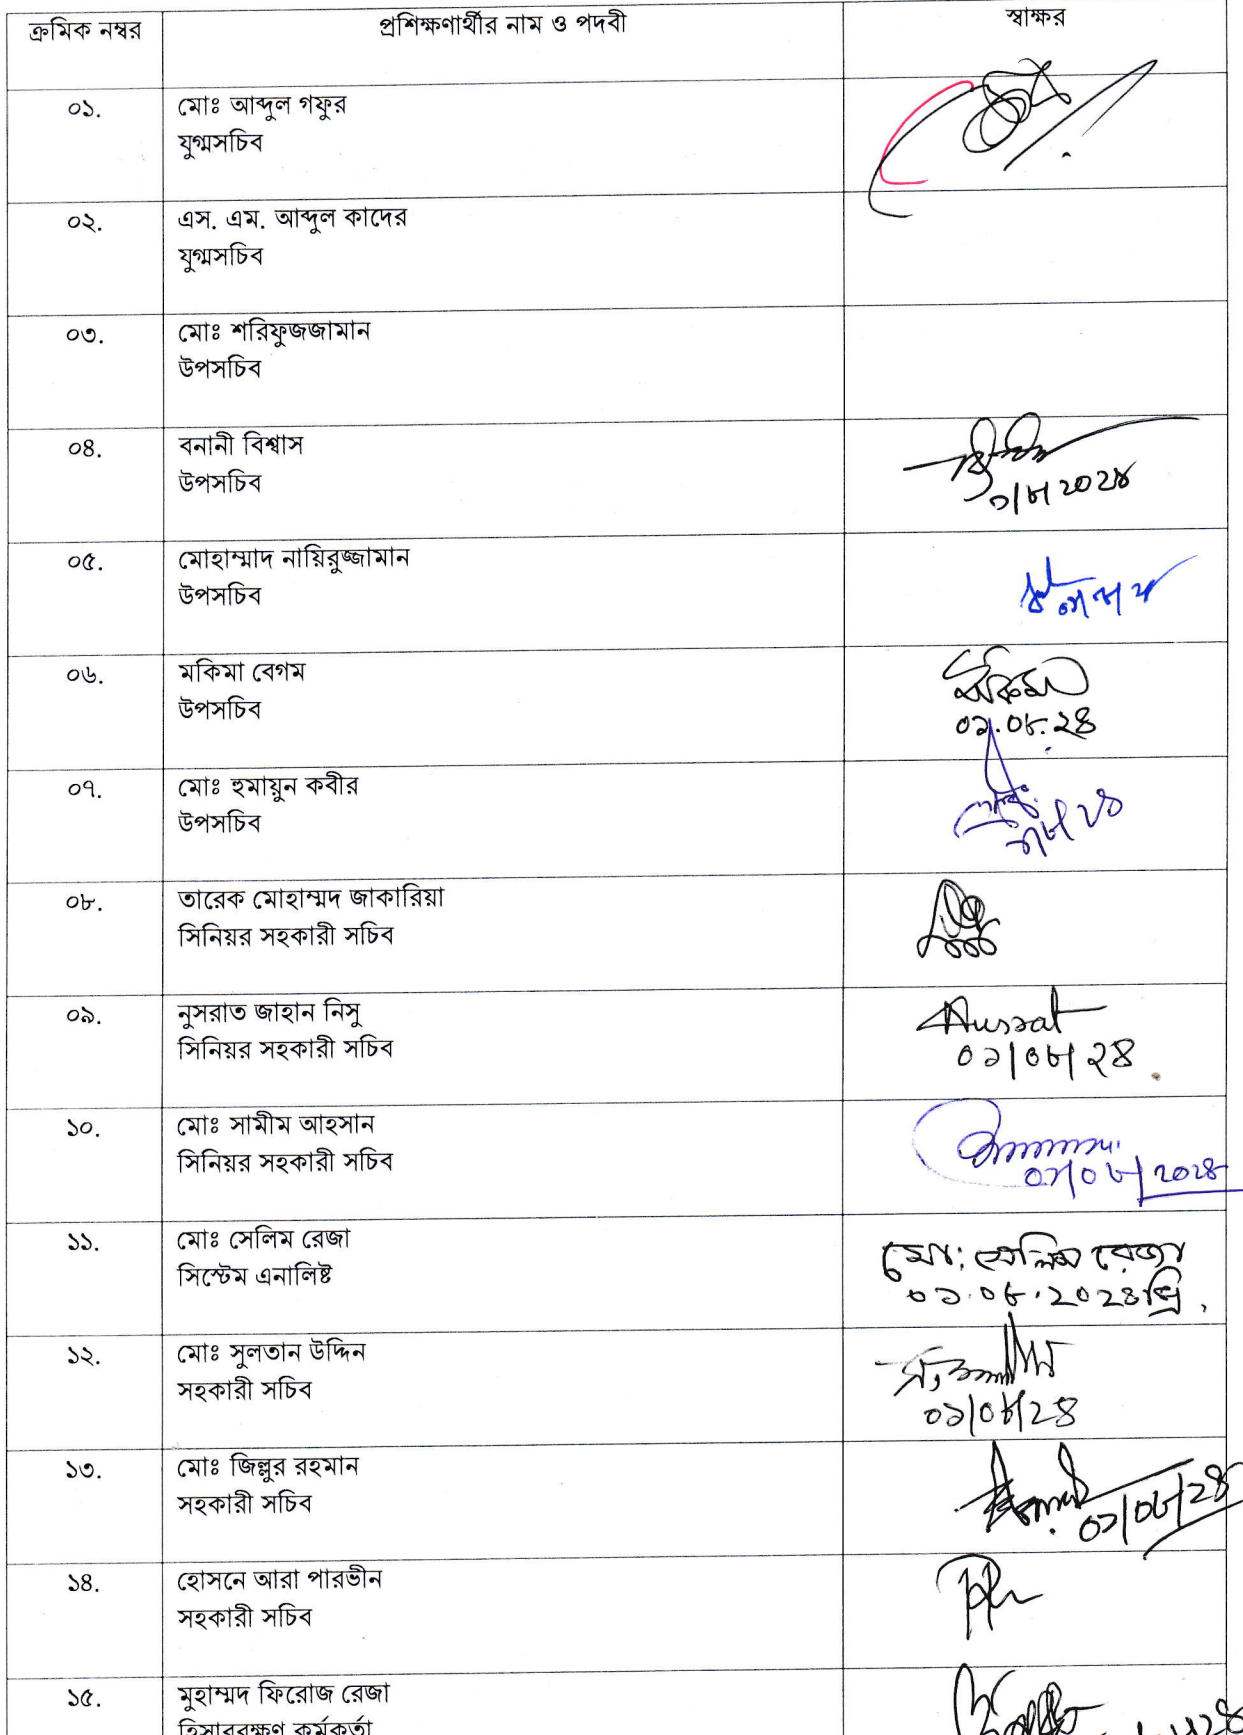 ক্রমিক নম্বর
প্রশিক্ষণার্থীর নাম ও পদবী
স্বাক্ষর
০১.
মোঃ আব্দুল গফুর
যুগ্মসচিব
০২.
এস. এম. আব্দুল কাদের
যুগ্মসচিব
০৩.
মোঃ শরিফুজজামান
উপসচিব
০৪.
বনানী বিশ্বাস
উপসচিব
১/৮/২০২৪
০৫.
মোহাম্মাদ নায়িরুজ্জামান
উপসচিব
০৬.
মকিমা বেগম
উপসচিব
মকিমা
০১.০৮.২৪
০৭.
মোঃ হুমায়ুন কবীর
উপসচিব
১/৮/২৪
০৮.
তারেক মোহাম্মদ জাকারিয়া
সিনিয়র সহকারী সচিব
০৯.
নুসরাত জাহান নিসু
সিনিয়র সহকারী সচিব
Nusrat
০১/০৮/২৪
১০.
মোঃ সামীম আহসান
সিনিয়র সহকারী সচিব
০১/০৮/২০২৪
১১.
মোঃ সেলিম রেজা
সিস্টেম এনালিষ্ট
মো: সেলিম রেজা
০১.০৮.২০২৪খ্রি.
১২.
মোঃ সুলতান উদ্দিন
সহকারী সচিব
০১/০৮/২৪
১৩.
মোঃ জিল্লুর রহমান
সহকারী সচিব
০১/০৮/২৪
১৪.
হোসনে আরা পারভীন
সহকারী সচিব
১৫.
মুহাম্মদ ফিরোজ রেজা
হিসাবরক্ষণ কর্মকর্তা